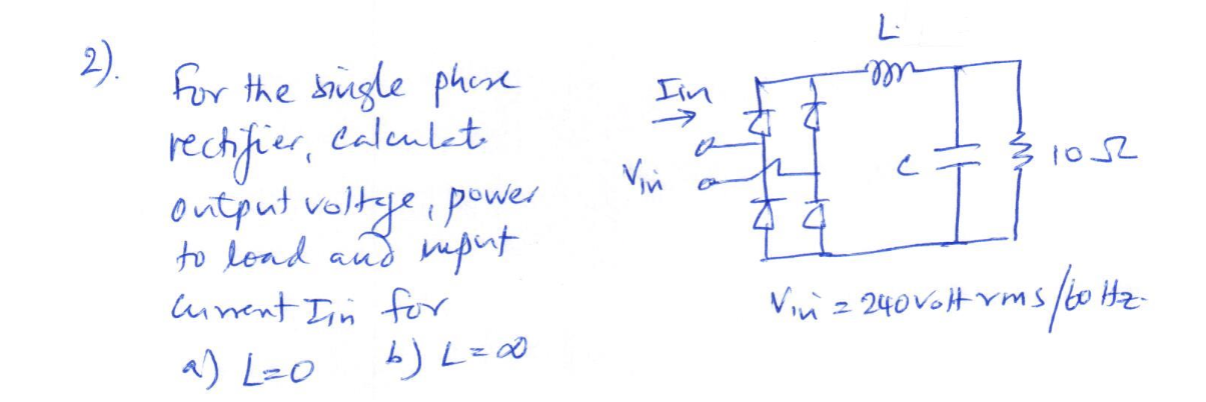 2).
For the single phase
rectifier, calculate
output voltage, power
to load and input
current Iin for
a) L=0 b) L=∞
L
Iin
Vin
C
10 Ω
Vin = 240 Volt rms/60 Hz.